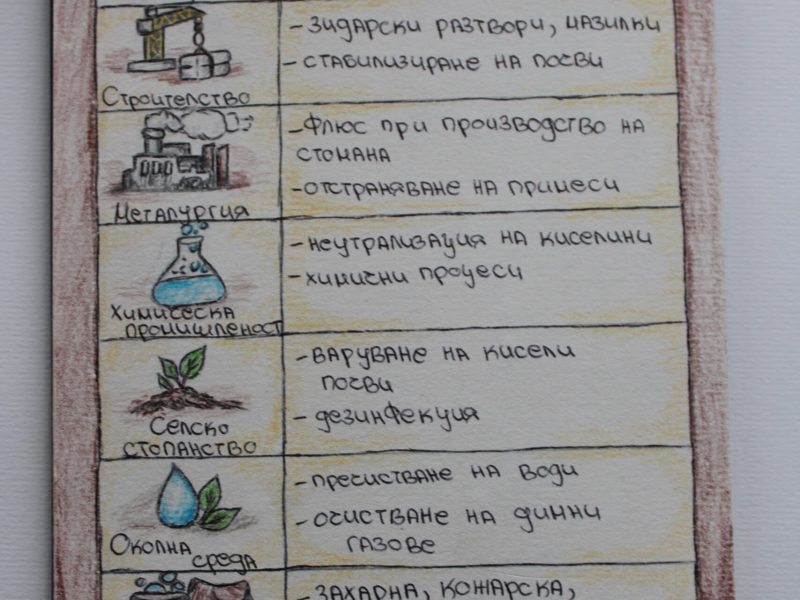 - зидарски разтвори, мазилки
- стабилизиране на почви
Строителство
- флюс при производство на
стомана
- отстраняване на примеси
Металургия
- неутрализация на киселини
- химични процеси
Химическа
промишленост
- варуване на кисели
почви
- дезинфекция
Селско
стопанство
- пречистване на води
- очистване на димни
газове
Околна
среда
- захарна, кожарска,